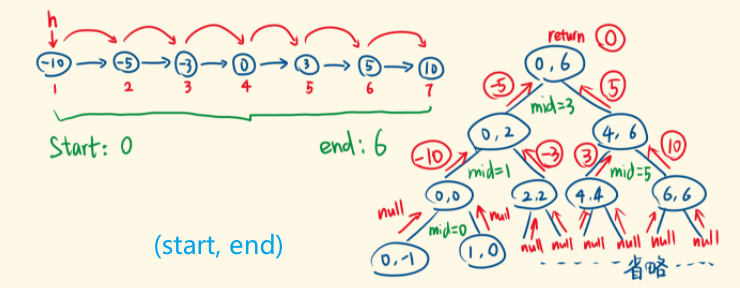 h
-10 -5 -3 0 3 5 10
1 2 3 4 5 6 7
Start: 0 end: 6
(start, end)
return 0
0, 6
-5 mid=3 5
0, 2 4, 6
-10 mid=1 -3 3 mid=5 10
0,0 2,2 4,4 6,6
null mid=0 null null null null null null null
0,-1 1,0
省略